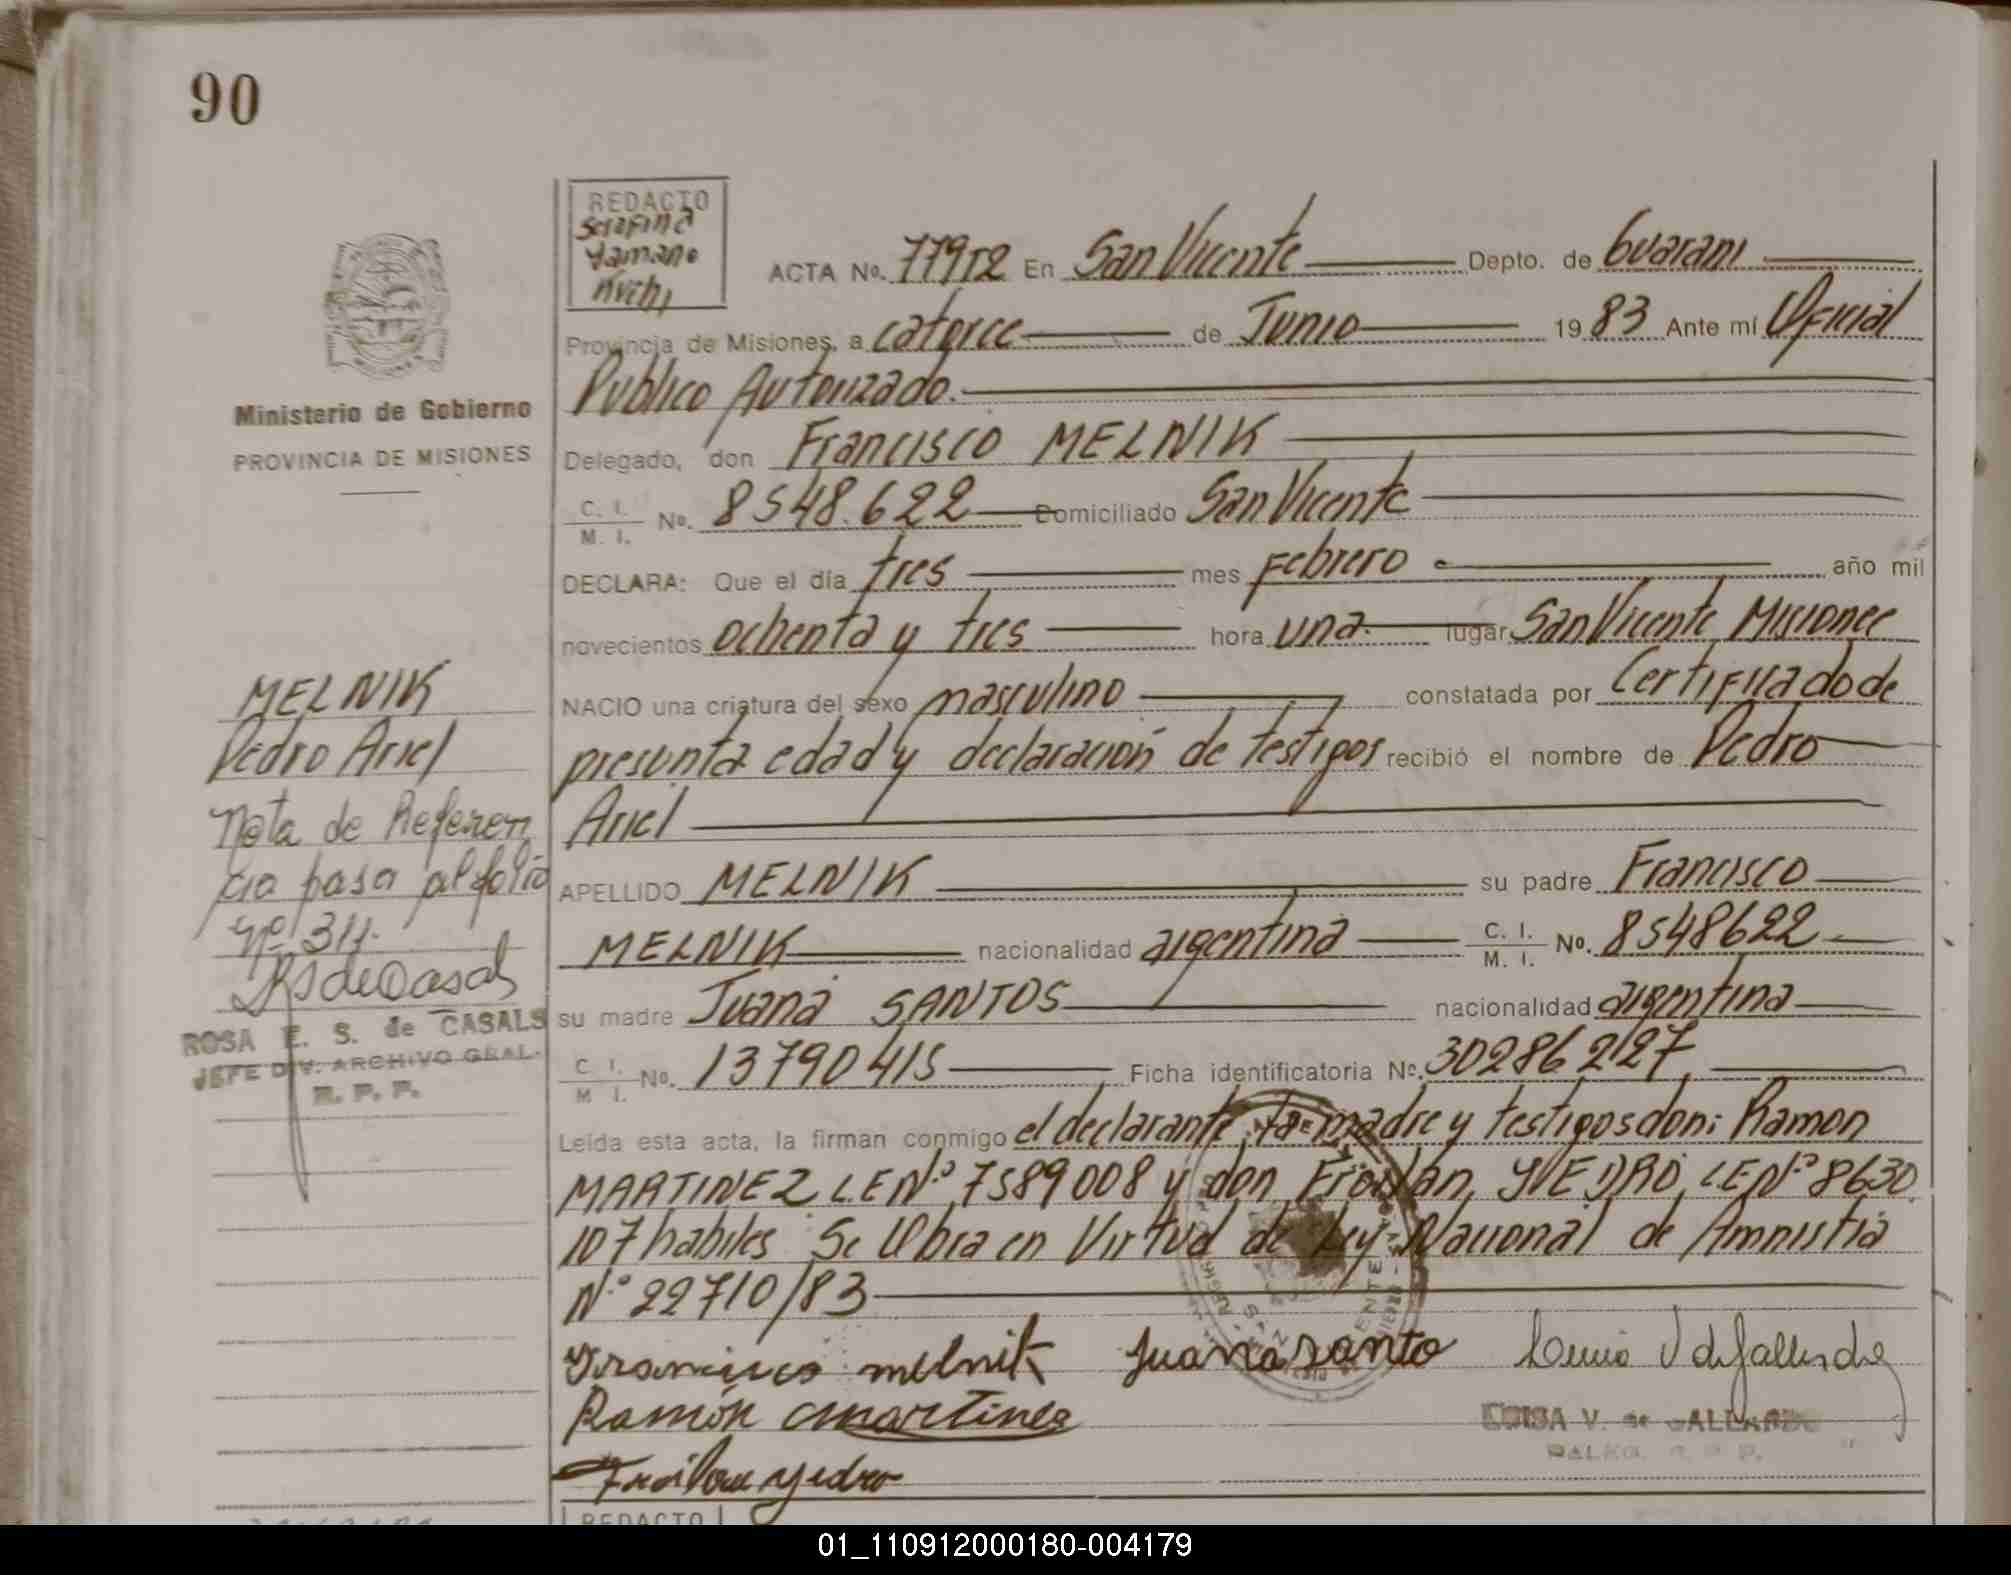 90
REDACTO
Serafina
Yamano
Kuchi
ACTA No. 779T2 En San Vicente Depto. de Guaraní
Provincia de Misiones, a catorce de Junio 1983 Ante mí Oficial
Publico Autorizado.
Ministerio de Gobierno
PROVINCIA DE MISIONES
Delegado, don Francisco MELNIK
C. I. / M. I. No. 8548.622 Domiciliado San Vicente
DECLARA: Que el día tres mes Febrero año mil
novecientos ochenta y tres hora una. lugar San Vicente Misiones
NACIO una criatura del sexo masculino constatada por Certificado de
presunta edad y declaración de testigos recibió el nombre de Pedro
Ariel
APELLIDO MELNIK su padre Francisco
MELNIK nacionalidad argentina C. I. / M. I. No. 8548622
su madre Juana SANTOS nacionalidad argentina
C. I. / M. I. No. 13790415 Ficha identificatoria No. 30286227
Leída esta acta, la firman conmigo el declarante, la madre y testigos don: Ramon
MARTINEZ L.E Nº 7589008 y don Froilan YVEDRO, L E Nº 8630
107 habiles Se Obra en Virtud de Ley Nacional de Amnistia
Nº 22710/83
Francisco melnik Juana santo
Ramón martinez
Froilan yedro
LUISA V. de GALLARDO
R. P. P.
MELNIK
Pedro Ariel
Nota de Referen
cia pasa al folio
Nº 311.
RS de Casals
ROSA E. S. de CASALS
JEFE DIV. ARCHIVO GRAL.
R. P. P.
REDACTO
01_110912000180-004179